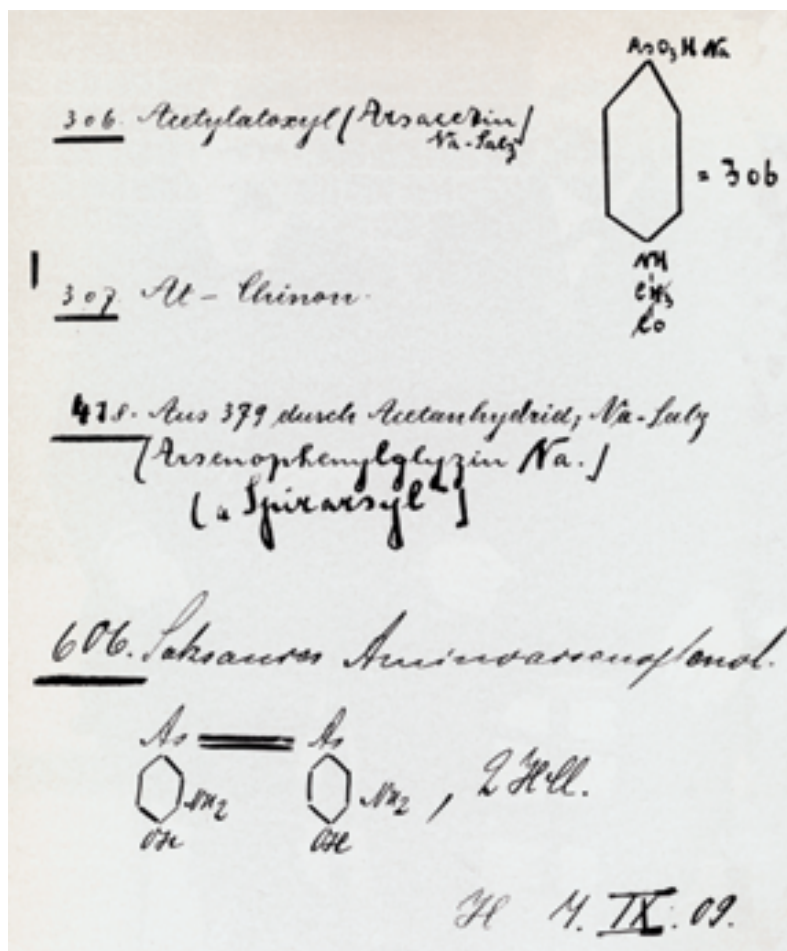 AsO3HNa
306. Acetylatoxyl (Arsacetin
Na-Salz)
= 306
NH
CH3
CO
307. At - Chinon.
418. Aus 379 durch Acetanhydrid, Na-Salz
(Arsenophenylglyzin Na.)
(„Spirarsyl“)
606. Salzsaures Aminoarsenophenol.
As As
NH2 NH2, 2 HCl.
OH OH
IX. 09.